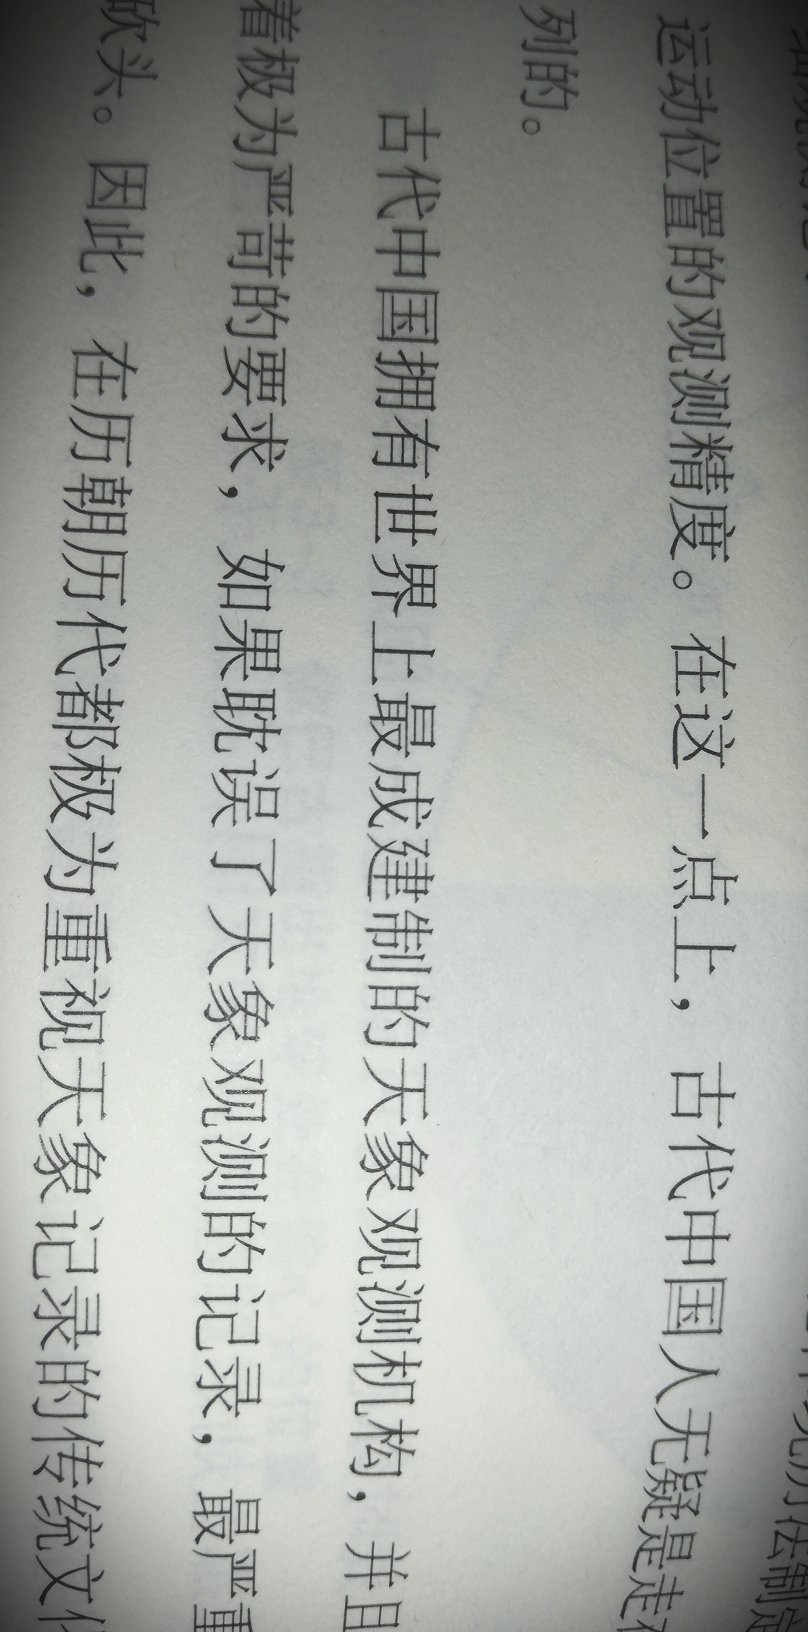 运动位置的观测精度。在这一点上，古代中国人无疑是走在
列的。
古代中国拥有世界上最成建制的天象观测机构，并且
着极为严苛的要求，如果耽误了天象观测的记录，最严重
砍头。因此，在历朝历代都极为重视天象记录的传统文化